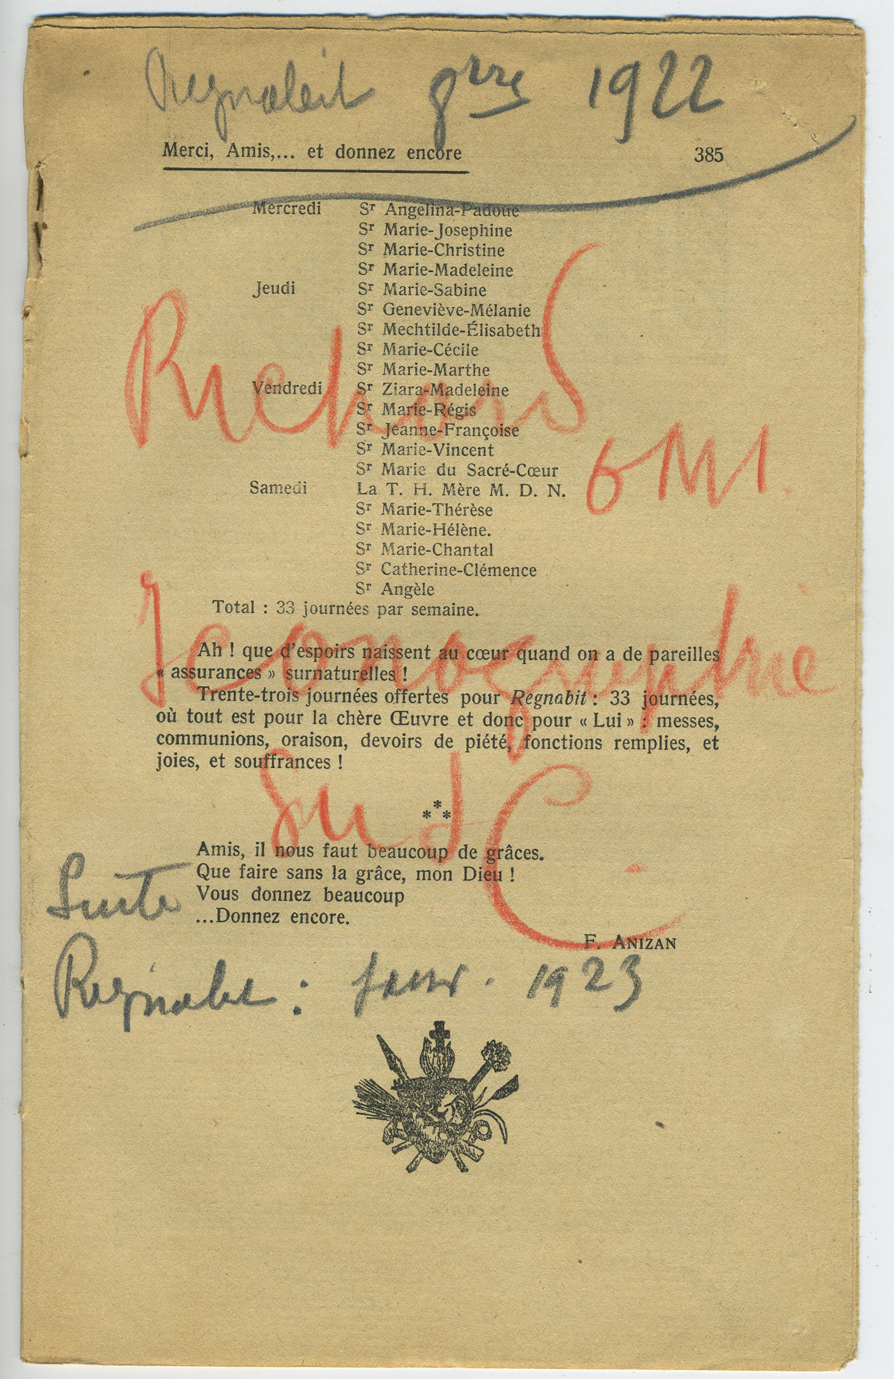 Regnabit 8bre 1922
Merci, Amis,... et donnez encore 385
Mercredi Sr Angelina-Padoue
Sr Marie-Josephine
Sr Marie-Christine
Sr Marie-Madeleine
Jeudi Sr Marie-Sabine
Sr Geneviève-Mélanie
Sr Mechtilde-Élisabeth
Sr Marie-Cécile
Sr Marie-Marthe
Vendredi Sr Ziara-Madeleine
Sr Marie-Régis
Sr Jeanne-Françoise
Sr Marie-Vincent
Sr Marie du Sacré-Cœur
Samedi La T. H. Mère M. D. N.
Sr Marie-Thérèse
Sr Marie-Hélène.
Sr Marie-Chantal
Sr Catherine-Clémence
Sr Angèle
Total : 33 journées par semaine.
Richard
OMI.
Ah ! que d'espoirs naissent au cœur quand on a de pareilles
« assurances » surnaturelles !
Trente-trois journées offertes pour Regnabit : 33 journées,
où tout est pour la chère Œuvre et donc pour « Lui » : messes,
communions, oraison, devoirs de piété, fonctions remplies, et
joies, et souffrances !
Iconographie
du S C.
***
Amis, il nous faut beaucoup de grâces.
Que faire sans la grâce, mon Dieu !
Vous donnez beaucoup
...Donnez encore.
F. ANIZAN
Suite
Regnabit : Janv. 1923